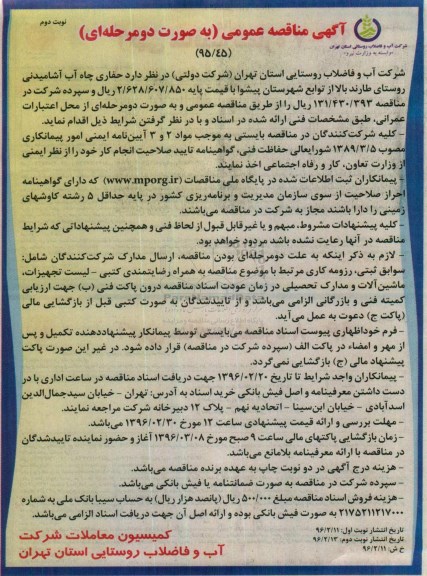 نوبت دوم
آگهی مناقصه عمومی (به صورت دومرحله‌ای)
(۹۵/۴۵)
شرکت آب و فاضلاب روستایی استان تهران
(وابسته به وزارت نیرو)
شرکت آب و فاضلاب روستایی استان تهران (شرکت دولتی) در نظر دارد حفاری چاه آب آشامیدنی
روستای طارند بالا از توابع شهرستان پیشوا با قیمت پایه ۲/۶۲۸/۶۰۷/۸۵۰ ریال و سپرده شرکت در
مناقصه ۱۳۱/۴۳۰/۳۹۳ ریال را از طریق مناقصه عمومی و به صورت دومرحله‌ای از محل اعتبارات
عمرانی، طبق مشخصات فنی ارائه شده در اسناد و با در نظر گرفتن شرایط ذیل اقدام نماید.
- کلیه شرکت‌کنندگان در مناقصه بایستی به موجب مواد ۲ و ۳ آیین‌نامه ایمنی امور پیمانکاری
مصوب ۱۳۸۹/۳/۵ شورایعالی حفاظت فنی، گواهینامه تایید صلاحیت انجام کار خود را از نظر ایمنی
از وزارت تعاون، کار و رفاه اجتماعی اخذ نمایند.
- پیمانکاران ثبت اطلاعات شده در پایگاه ملی مناقصات (www.mporg.ir) که دارای گواهینامه
احراز صلاحیت از سوی سازمان مدیریت و برنامه‌ریزی کشور در پایه حداقل ۵ رشته کاوشهای
زمینی را دارا باشند مجاز به شرکت در مناقصه می‌باشند.
- کلیه پیشنهادات مشروط، مبهم و یا غیرقابل قبول از لحاظ فنی و همچنین پیشنهاداتی که شرایط
مناقصه در آنها رعایت نشده باشد مردود خواهد بود.
- لازم به ذکر اینکه به علت دومرحله‌ای بودن مناقصه، ارسال مدارک شرکت‌کنندگان شامل:
سوابق ثبتی، رزومه کاری مرتبط با موضوع مناقصه به همراه رضایتمندی کتبی - لیست تجهیزات،
ماشین‌آلات و مدارک تحصیلی در زمان عودت اسناد مناقصه درون پاکت فنی (ب) جهت ارزیابی
کمیته فنی و بازرگانی الزامی می‌باشد و از تاییدشدگان به صورت کتبی قبل از بازگشایی مالی
(پاکت ج) دعوت به عمل می‌آید.
- فرم خوداظهاری پیوست اسناد مناقصه می‌بایستی توسط پیمانکار پیشنهاددهنده تکمیل و پس
از مهر و امضاء در پاکت الف (سپرده شرکت در مناقصه) قرار داده شود. در غیر این صورت پاکت
پیشنهاد مالی (ج) بازگشایی نمی‌گردد.
- پیمانکاران واجد شرایط تا تاریخ ۱۳۹۶/۰۲/۲۰ جهت دریافت اسناد مناقصه در ساعت اداری با در
دست داشتن معرفینامه و اصل فیش بانکی خرید اسناد به آدرس: تهران - خیابان سیدجمال‌الدین
اسدآبادی - خیابان ابن‌سینا - اتحادیه نهم - پلاک ۱۲ دبیرخانه شرکت مراجعه نمایند.
- مهلت بررسی و ارائه قیمت پیشنهادی ساعت ۱۲ مورخ ۱۳۹۶/۰۲/۳۰ می‌باشد.
- زمان بازگشایی پاکتهای مالی ساعت ۹ صبح مورخ ۱۳۹۶/۰۳/۰۸ آغاز و حضور نماینده تاییدشدگان
در مناقصه با ارائه معرفینامه بلامانع می‌باشد.
- هزینه درج آگهی در دو نوبت چاپ به عهده برنده مناقصه می‌باشد.
- سپرده شرکت در مناقصه به صورت ضمانتنامه یا فیش بانکی می‌باشد.
- هزینه فروش اسناد مناقصه مبلغ ۵۰۰/۰۰۰ ریال (پانصد هزار ریال) به حساب سیبا بانک ملی به شماره
۲۱۷۵۲۱۱۲۱۷۰۰۰ به صورت فیش بانکی بوده و ارائه اصل آن جهت دریافت اسناد الزامی می‌باشد.
تاریخ انتشار نوبت اول: ۹۶/۲/۱۱
تاریخ انتشار نوبت دوم: ۹۶/۲/۱۲
خ ش: ۹۶/۲/۱۱
کمیسیون معاملات شرکت
آب و فاضلاب روستایی استان تهران